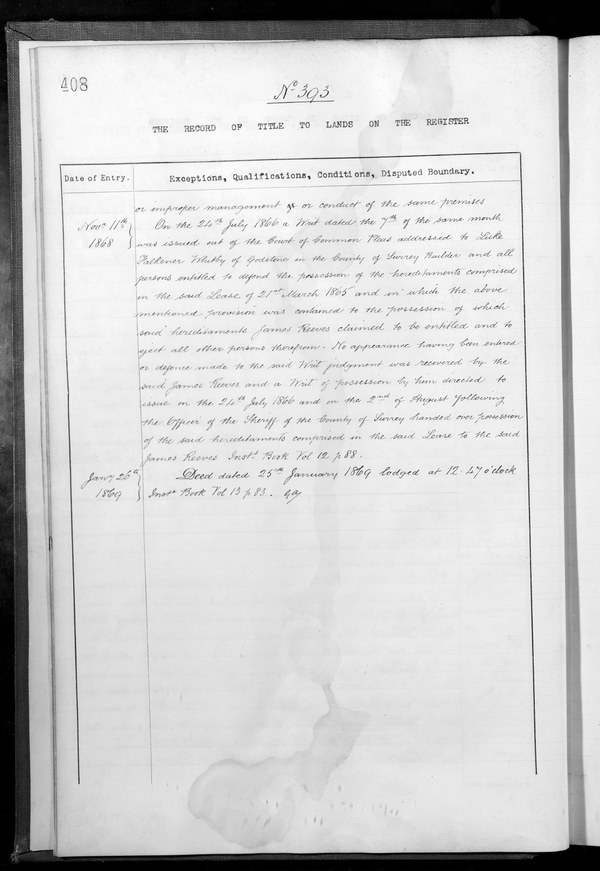 408
No 393
THE RECORD OF TITLE TO LANDS ON THE REGISTER
Date of Entry.
Exceptions, Qualifications, Conditions, Disputed Boundary.
or improper management or conduct of the same premises
Novr 11th
1868
On the 24th July 1866 a Writ dated the 7th of the same month
was issued out of the Court of Common Pleas addressed to Luke
Falkener Whitby of Godstone in the County of Surrey Builder and all
persons entitled to defend the possession of the hereditaments comprised
in the said Lease of 21st March 1865 and in which the above
mentioned provision was contained to the possession of which
said hereditaments James Reeves claimed to be entitled and to
eject all other persons therefrom. No appearance having been entered
or defence made to the said Writ judgment was recovered by the
said James Reeves and a Writ of possession by him directed to
issue on the 24th July 1866 and on the 2nd of August following
the Officer of the Sheriff of the County of Surrey handed over possession
of the said hereditaments comprised in the said Lease to the said
James Reeves Inst. Book Vol 12 p 88.
Jany 26th
1869
Deed dated 25th January 1869 lodged at 12.47 o'clock
Inst. Book Vol 13 p 83.